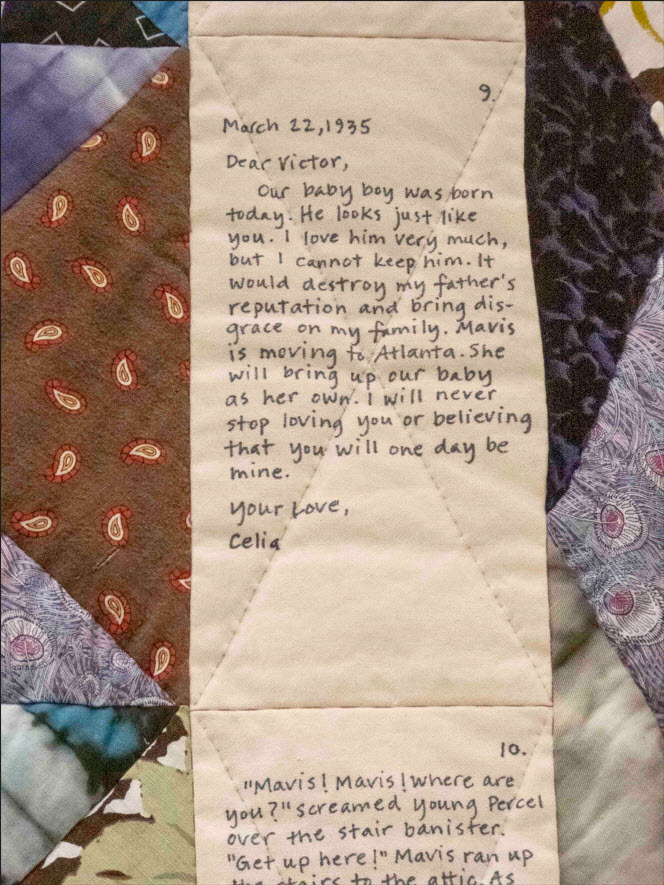 9.
March 22, 1935
Dear Victor,
Our baby boy was born
today. He looks just like
you. I love him very much,
but I cannot keep him. It
would destroy my father's
reputation and bring dis-
grace on my family. Mavis
is moving to Atlanta. She
will bring up our baby
as her own. I will never
stop loving you or believing
that you will one day be
mine.
Your Love,
Celia
10.
"Mavis! Mavis! Where are
you?" screamed young Percel
over the stair banister.
"Get up here!" Mavis ran up
the stairs to the attic. As